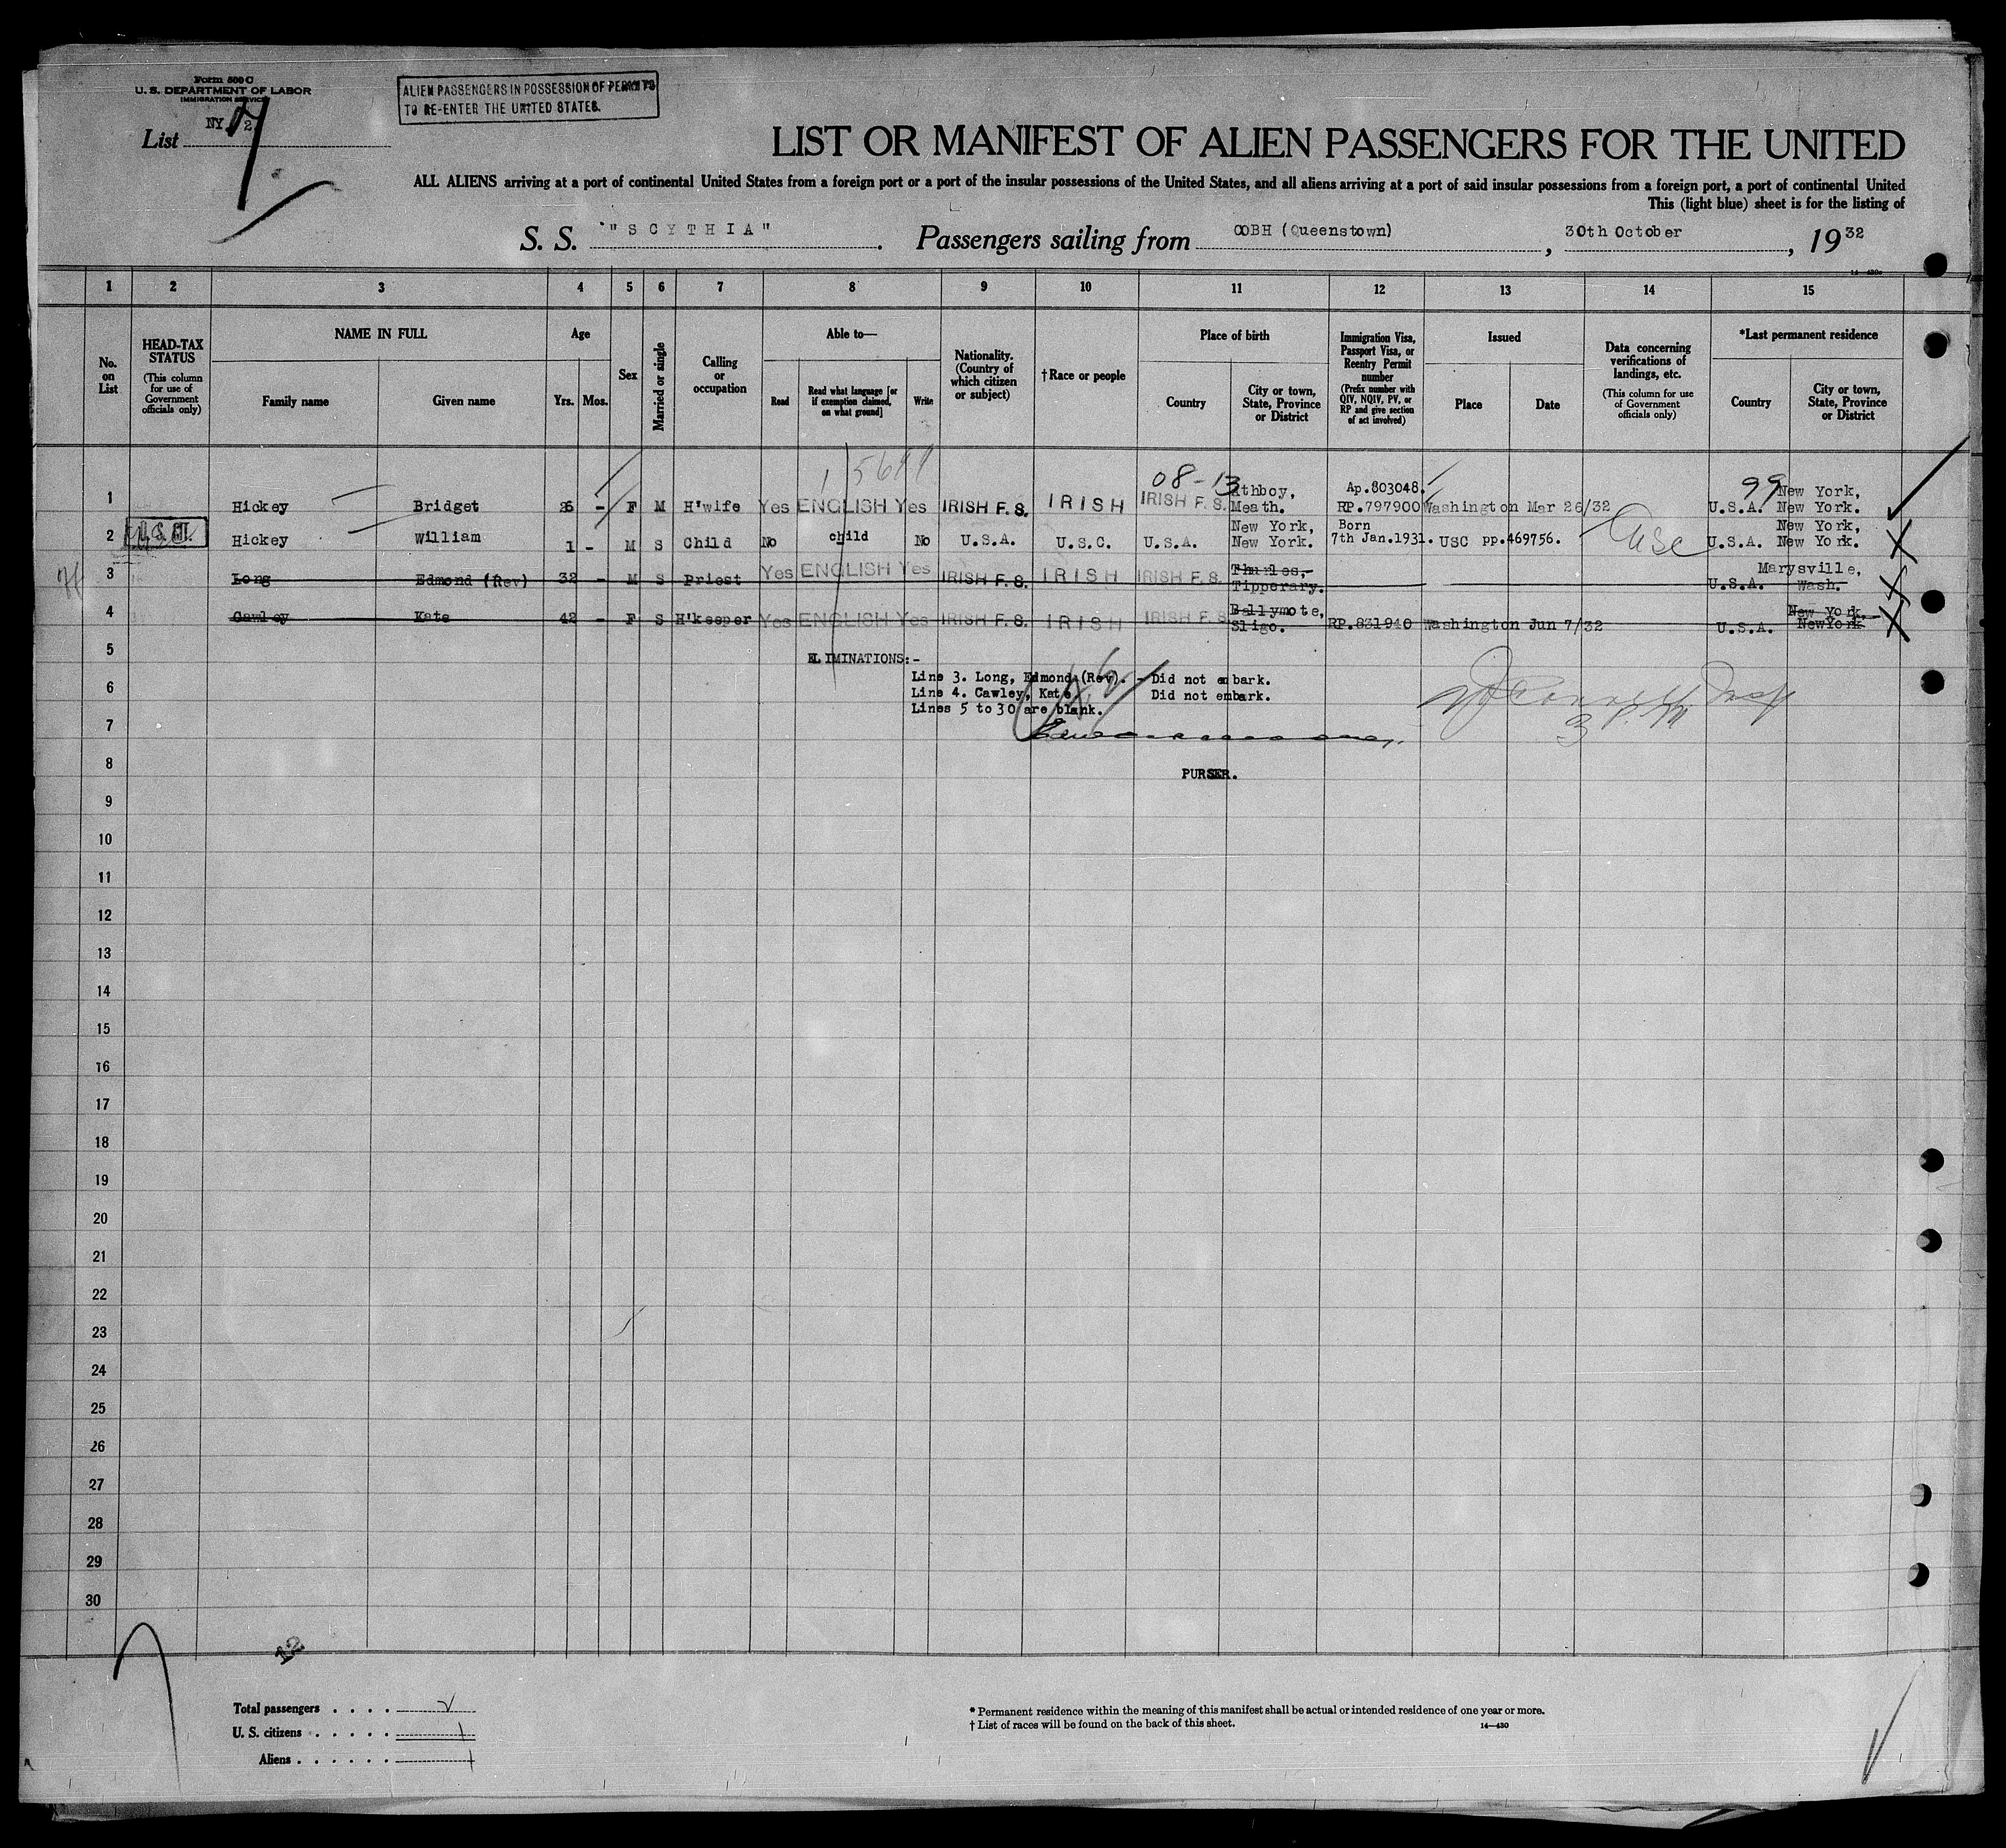 Form 500 C
U. S. DEPARTMENT OF LABOR
IMMIGRATION SERVICE
NY. 2
List 7
ALIEN PASSENGERS IN POSSESSION OF PERMITS
TO RE-ENTER THE UNITED STATES.
LIST OR MANIFEST OF ALIEN PASSENGERS FOR THE UNITED
ALL ALIENS arriving at a port of continental United States from a foreign port or a port of the insular possessions of the United States, and all aliens arriving at a port of said insular possessions from a foreign port, a port of continental United
This (light blue) sheet is for the listing of
S. S. "SCYTHIA". Passengers sailing from COBH (Queenstown), 30th October, 1932
1 2 3 4 5 6 7 8 9 10 11 12 13 14 15
No. on List
HEAD-TAX STATUS
(This column for use of Government officials only)
NAME IN FULL
Family name Given name
Age
Yrs. Mos.
Sex
Married or single
Calling or occupation
Able to—
Read
Read what language [or if exemption claimed, on what ground]
Write
Nationality. (Country of which citizen or subject)
† Race or people
Place of birth
Country
City or town, State, Province or District
Immigration Visa, Passport Visa, or Reentry Permit number
(Prefix number with QIV, NQIV, PV, or RP and give section of act involved)
Issued
Place Date
Data concerning verifications of landings, etc.
(This column for use of Government officials only)
*Last permanent residence
Country
City or town, State, Province or District
08-13
99
1 Hickey Bridget 26 - F M H'wife Yes ENGLISH Yes IRISH F. S. IRISH IRISH F. S. Athboy, Meath. Ap.803048. RP.797900 Washington Mar 26/32 U.S.A. New York, New York.
2 U.S. CIT. Hickey William 1 - M S Child No child No U.S.A. U.S.C. U.S.A. New York, New York. Born 7th Jan.1931. USC pp.469756. USC U.S.A. New York, New York.
3 Long Edmond (Rev) 32 - M S Priest Yes ENGLISH Yes IRISH F. S. IRISH IRISH F. S. Thurles, Tipperary. U.S.A. Marysville, Wash.
4 Cawley Kate 42 - F S H'keeper Yes ENGLISH Yes IRISH F. S. IRISH IRISH F. S. Ballymote, Sligo. RP.831940 Washington Jun 7/32 U.S.A. New York, NewYork
5
ELIMINATIONS:-
6
Line 3. Long, Edmond (Rev). - Did not embark.
Line 4. Cawley, Kate. Did not embark.
Lines 5 to 30 are blank.
7
8
PURSER.
9
10
11
12
13
14
15
16
17
18
19
20
21
22
23
24
25
26
27
28
29
30
12
Total passengers . . . . 2
U. S. citizens . . . . . 1
Aliens . . . . . . 1
* Permanent residence within the meaning of this manifest shall be actual or intended residence of one year or more.
† List of races will be found on the back of this sheet.
14—430